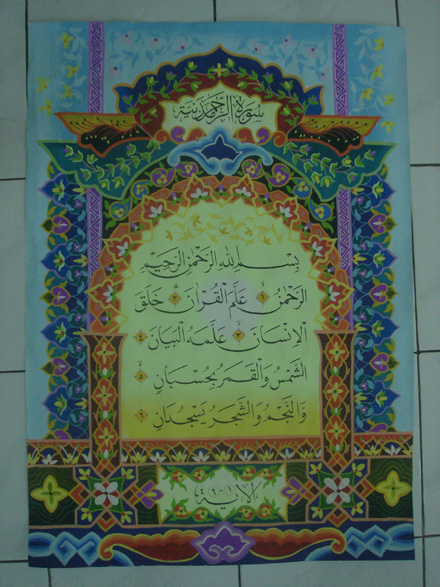 سورة الرحمن مدنية
بِسْمِ اللهِ الرَّحْمٰنِ الرَّحِيْمِ
الرَّحْمٰنُ ١ عَلَّمَ الْقُرْاٰنَ ٢ خَلَقَ
الْاِنْسَانَ ٣ عَلَّمَهُ الْبَيَانَ ٤
الشَّمْسُ وَالْقَمَرُ بِحُسْبَانٍ ٥
وَالنَّجْمُ وَالشَّجَرُ يَسْجُدَانِ ٦
الاية